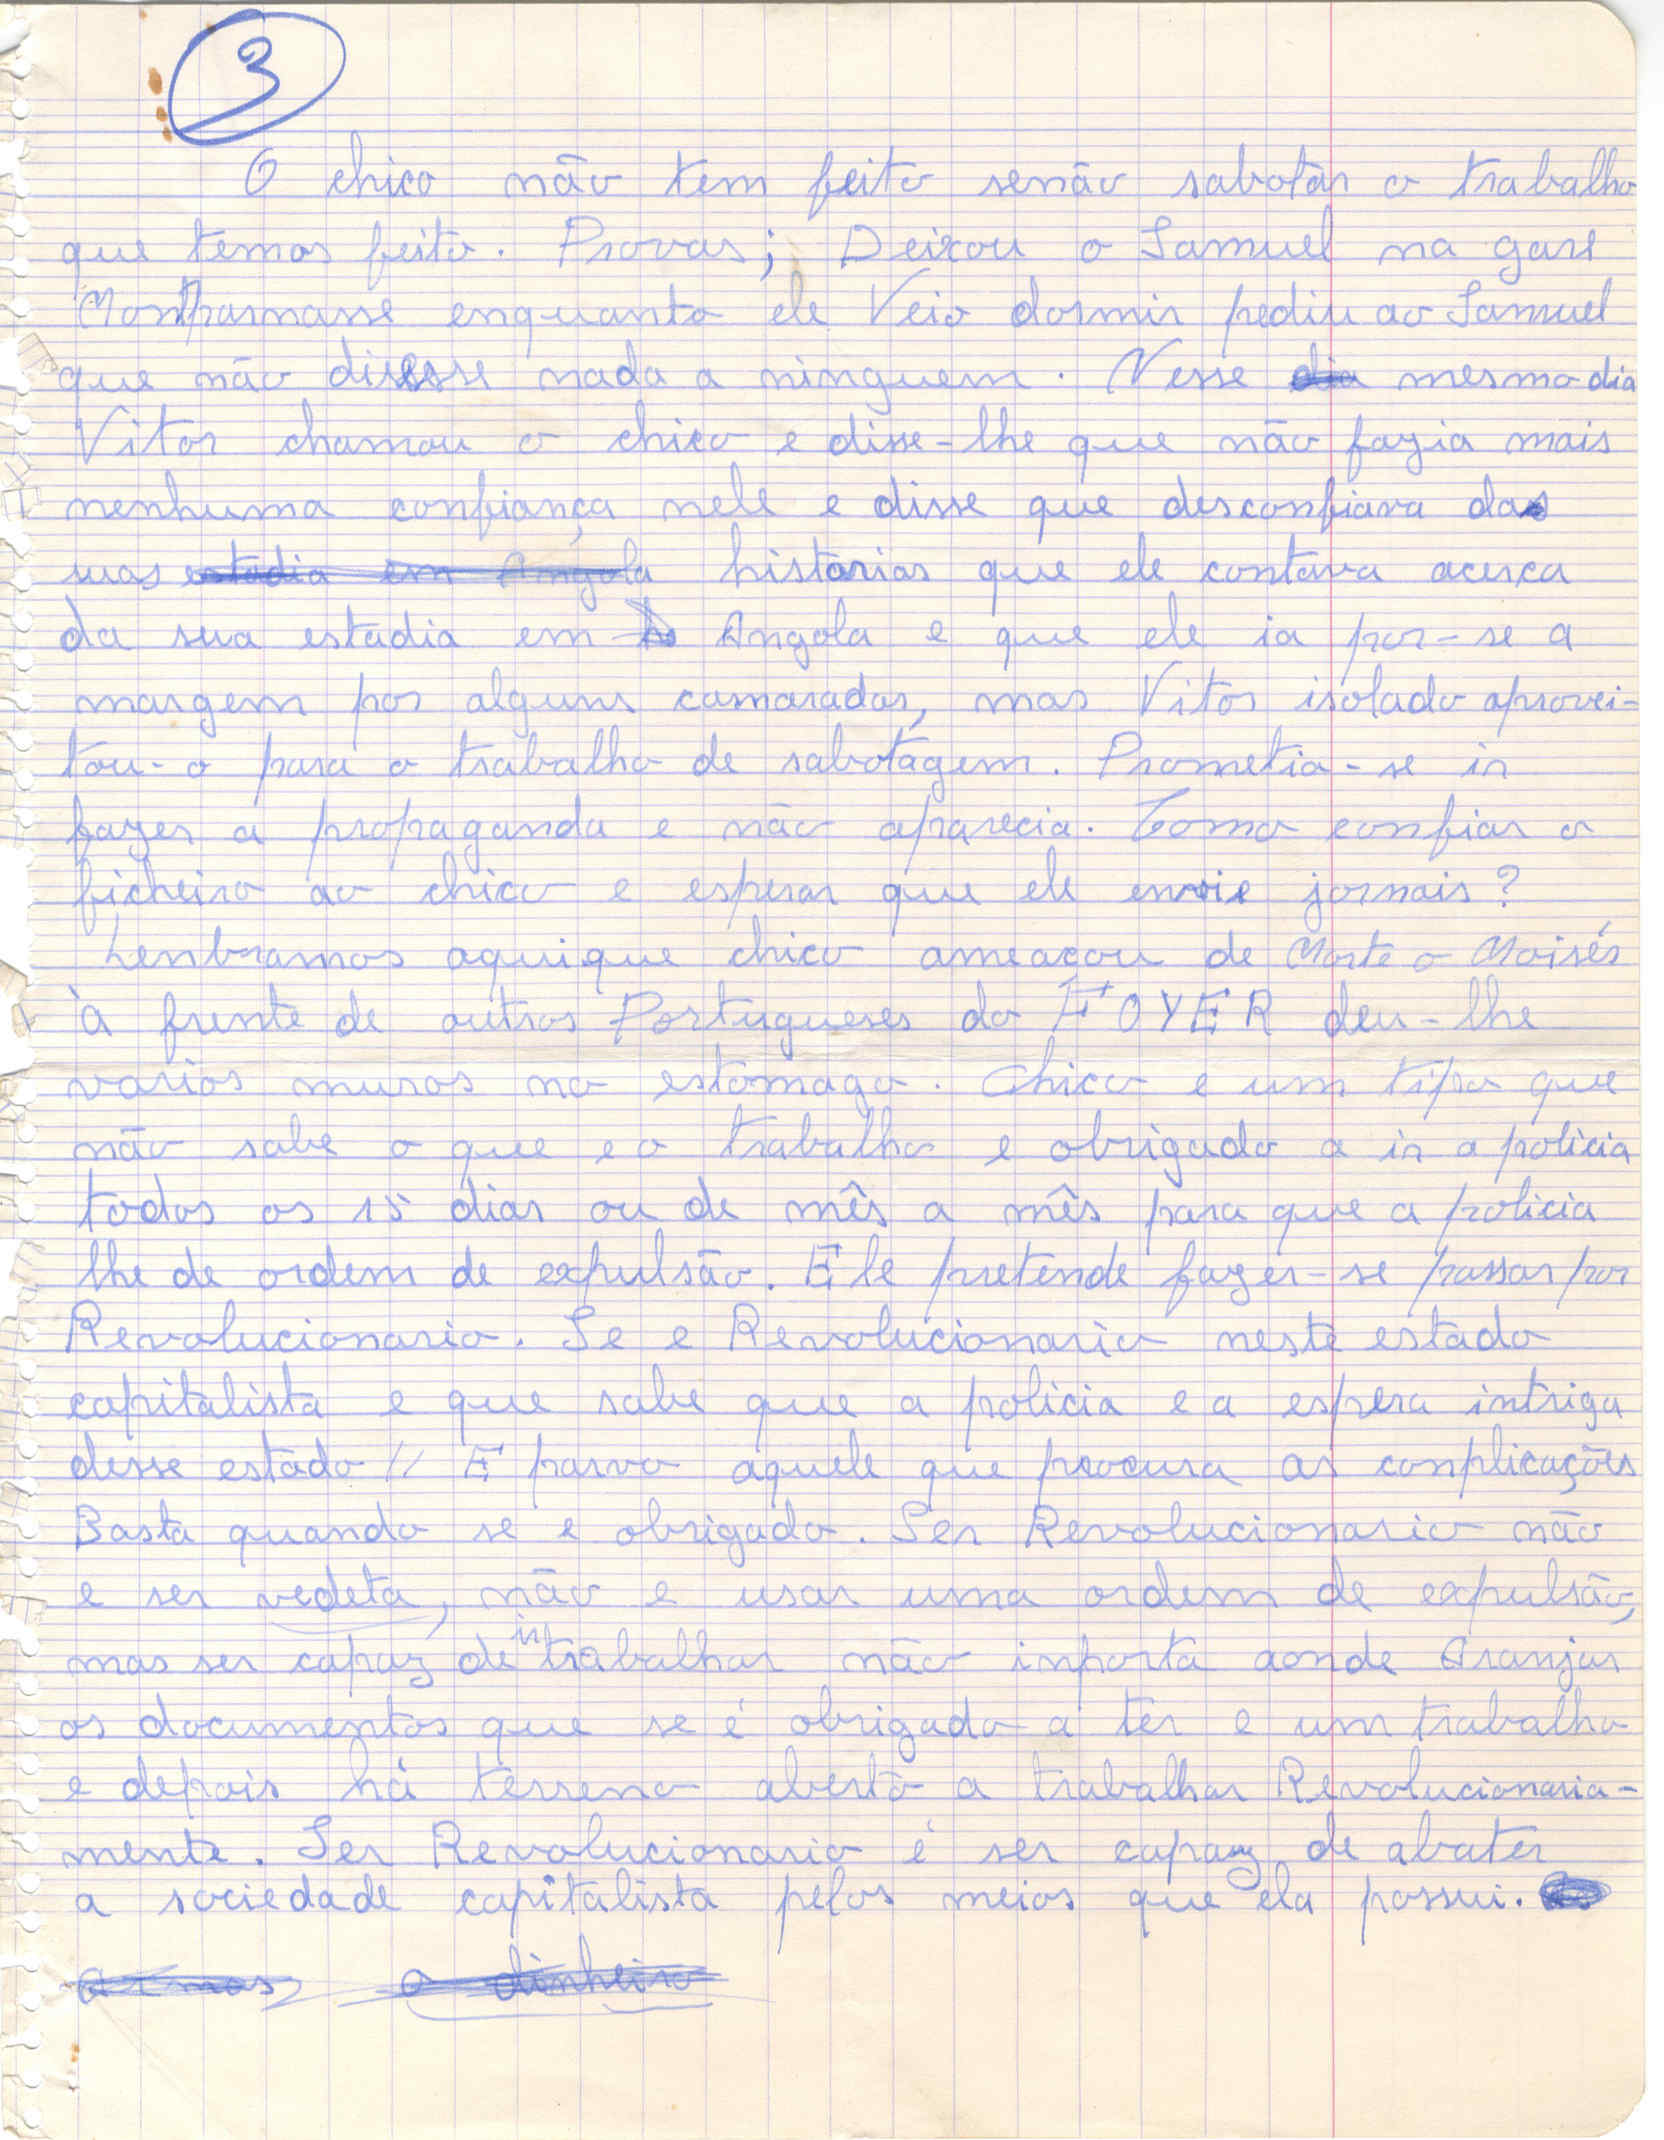 3
O chico não tem feito senão sabotar o trabalho
que temos feito. Provas; Deixou o Samuel na gare
Montparnasse enquanto ele Veio dormir pediu ao Samuel
que não disesse nada a ninguem. Nesse dia mesmo dia
Vitor chamou o chico e disse-lhe que não fazia mais
nenhuma confiança nele e disse que desconfiava das
suas estadia em Angola historias que ele contava acerca
da sua estadia em Angola e que ele ia por-se a
margem por alguns camaradas, mas Vitor isolado aprovei-
tou-o para o trabalho de sabotagem. Prometia-se ir
fazer a propaganda e não aparecia. Como confiar o
ficheiro ao chico e esperar que ele envie jornais?
Lenbramos aqui que chico ameaçou de Morte o Moisés
à frente de outros Portugueses do FOYER deu-lhe
varios muros no estomago. Chico e um tipo que
não sabe o que e o trabalho e obrigado a ir a policia
todos os 15 dias ou de mês a mês para que a policia
lhe de ordem de expulsão. Ele pretende fazer-se passar por
Revolucionario. Se e Revolucionario neste estado
capitalista e que sabe que a policia e a espera intriga
desse estado // E parvo aquele que procura as conplicações
Basta quando se e obrigado. Ser Revolucionario não
e ser vedeta, não e usar uma ordem de expulsão,
mas ser capaz de ir trabalhar não inporta aonde Aranjar
os documentos que se é obrigado a ter e um trabalho
e depois há terreno aberto a trabalhar Revolucionaria-
mente. Ser Revolucionario é ser capaz de abater
a sociedade capitalista pelos meios que ela possui.
armas o dinheiro